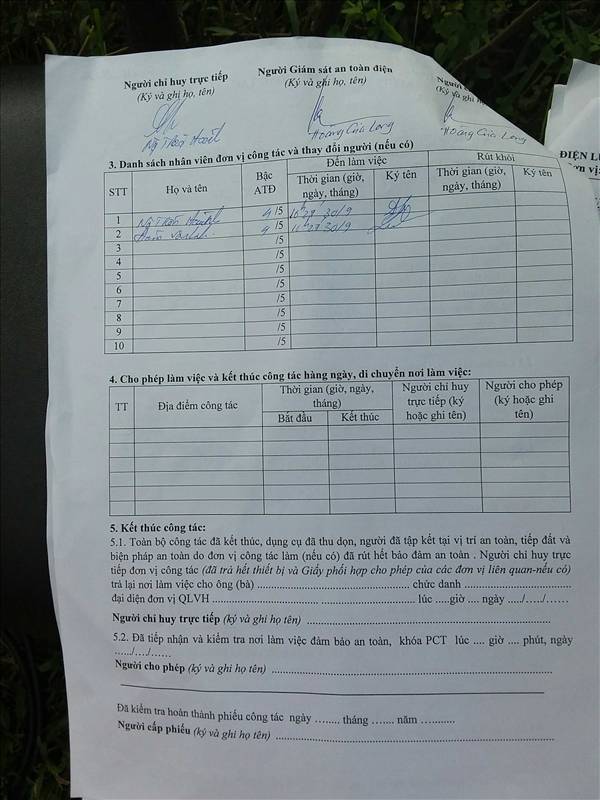 Người chỉ huy trực tiếp Người Giám sát an toàn điện Người
(Ký và ghi họ, tên) (Ký và ghi họ, tên) (Ký và ghi h
Hoàng Cửu Long Hoàng Cửu Long
3. Danh sách nhân viên đơn vị công tác và thay đổi người (nếu có)
STT Họ và tên Bậc ATĐ Đến làm việc Rút khỏi
Thời gian (giờ, ngày, tháng) Ký tên Thời gian (giờ, ngày, tháng) Ký tên
1 4 /5 30/9
2 4 /5 30/9
3 /5
4 /5
5 /5
6 /5
7 /5
8 /5
9 /5
10 /5
ĐIỆN L
ơn vị:
4. Cho phép làm việc và kết thúc công tác hàng ngày, di chuyển nơi làm việc:
TT Địa điểm công tác Thời gian (giờ, ngày, tháng) Người chỉ huy trực tiếp (ký hoặc ghi tên) Người cho phép (ký hoặc ghi tên)
Bắt đầu Kết thúc
5. Kết thúc công tác:
5.1. Toàn bộ công tác đã kết thúc, dụng cụ đã thu dọn, người đã tập kết tại vị trí an toàn, tiếp đất và
biện pháp an toàn do đơn vị công tác làm (nếu có) đã rút hết bảo đảm an toàn . Người chỉ huy trực
tiếp đơn vị công tác (đã trả hết thiết bị và Giấy phối hợp cho phép của các đơn vị liên quan-nếu có)
trả lại nơi làm việc cho ông (bà) ........................................ chức danh ............................
đại diện đơn vị QLVH ........................................................ lúc ....giờ .... ngày ...../...../......
Người chỉ huy trực tiếp (ký và ghi họ tên) ............................................................
5.2. Đã tiếp nhận và kiểm tra nơi làm việc đảm bảo an toàn, khóa PCT lúc .... giờ .... phút, ngày
....../..../......
Người cho phép (ký và ghi họ tên) ......................................................................
Đã kiểm tra hoàn thành phiếu công tác ngày ........ tháng ....... năm ...........
Người cấp phiếu (ký và ghi họ tên) ......................................................................